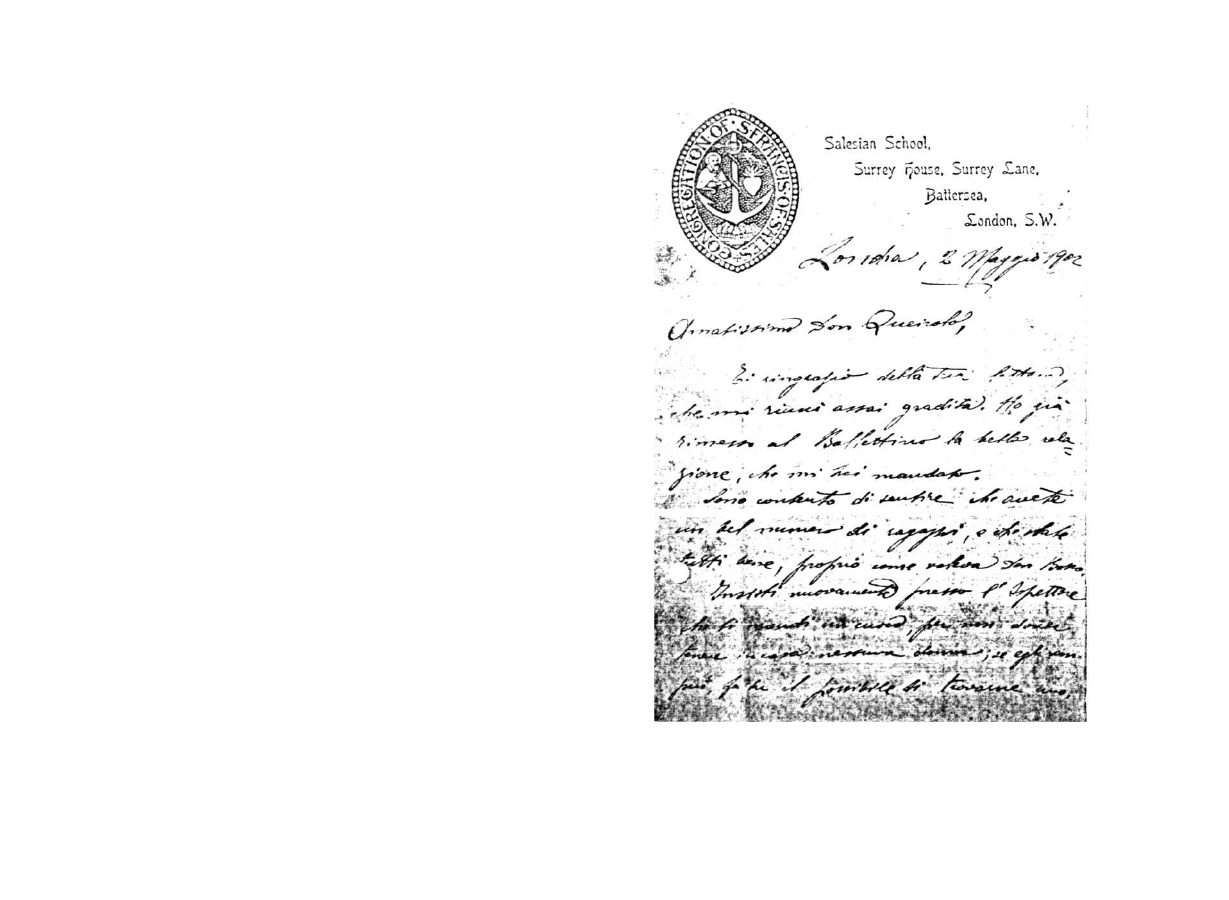 CONGREGATION OF S FRANCIS OF SALES
Salesian School,
Surrey House, Surrey Lane,
Battersea,
London, S.W.
Londra, 2 Maggio 1902
Amatissimo Don Queirolo,
Ti ringrazio della tua lettera,
che mi riuscì assai gradita. Ho già
rimesso al Bollettino la bella rela=
zione, che mi hai mandato.
Sono contento di sentire che avete
un bel numero di ragazzi, e che state
tutti bene, proprio come voleva Don Bosco.
Insisti nuovamente presso l'Ispettore
che ti mandi un cuoco, per non dover
tenere in casa nessuna donna; se egli non
può, fa tu il possibile di trovarne uno,